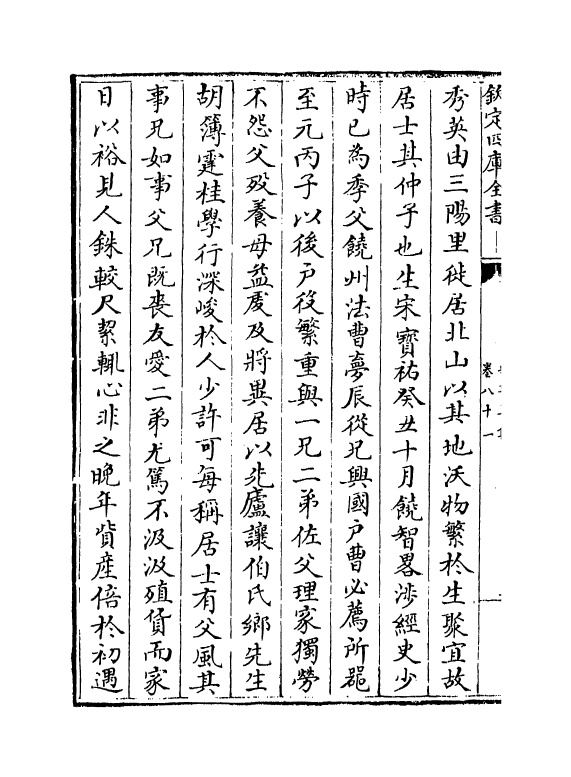 欽定四庫全書
卷八十一
秀英由三陽里徙居北山以其地沃物繁於生聚宜故
居士其仲子也生宋寶祐癸丑十月饒智畧涉經史少
時已為季父饒州法曹夢辰從兄興國戶曹必薦所器
至元丙子以後户役繁重與一兄二弟佐父理家獨勞
不怨父歿養母益䖍及將異居以先廬讓伯氏鄉先生
胡簿霆桂學行深峻於人少許可每稱居士有父風其
事兄如事父兄既喪友愛二弟尤篤不汲汲殖貨而家
日以裕見人銖較尺絜輒心非之晩年貲産倍於初遇